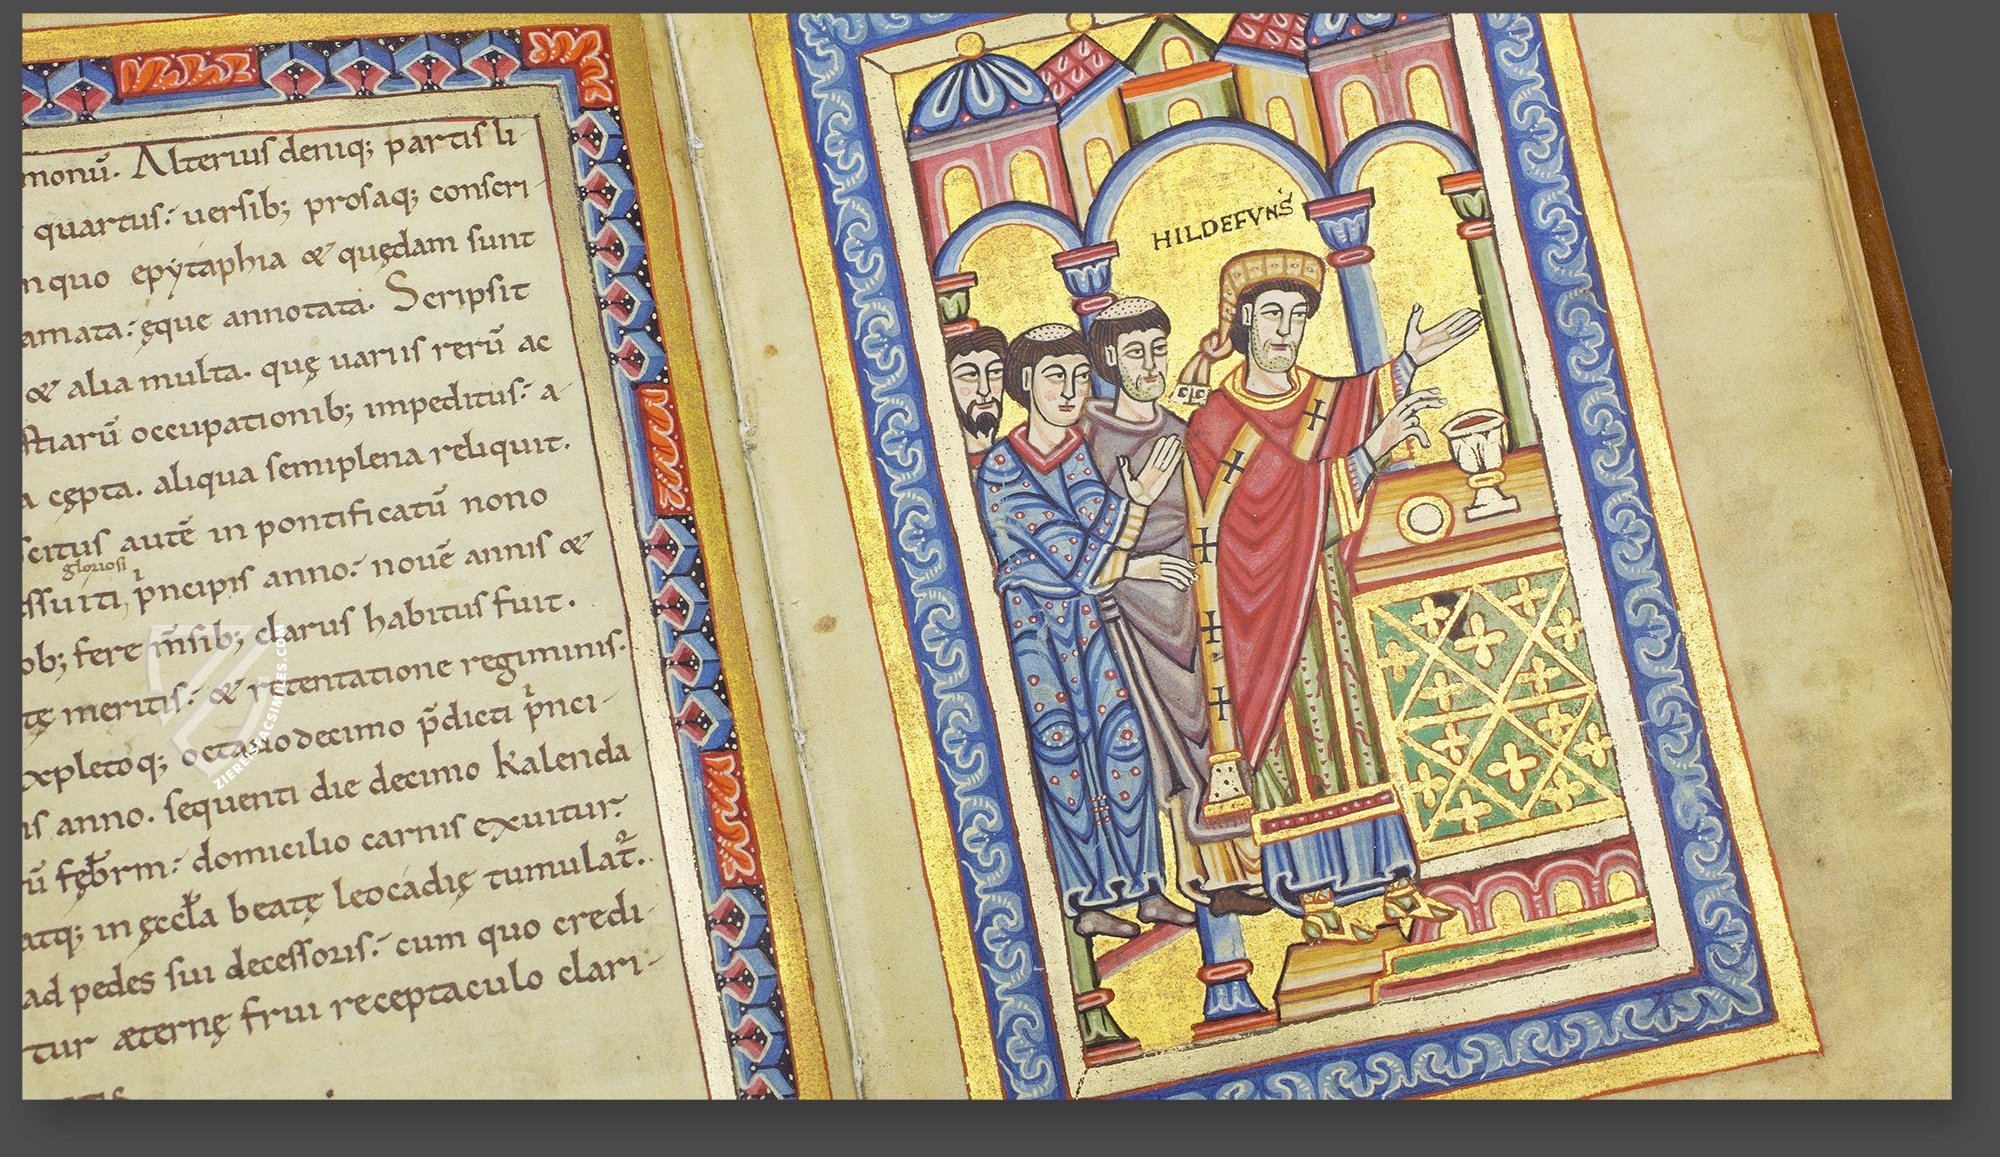 monū. Alterius deniq; partis li-
quartus: uersib; prosaq; conseri-
nquo epytaphia & quędam sunt
amata: ęque annotata. Scripsit
& alia multa. quę uariis rerū ac
stiarū occupationib; impeditus: a-
a cępta. aliqua semiplena reliquit.
scitus autē in pontificatū nono
gloriosi
ssuiti, prncipis anno: nouē annis &
ob; fere m̄sib; clarus habitus fuit.
tę meritis: & retentatione regiminis.
xpletoq; octauodecimo p̄dicti prnci-
is anno. sequenti die decimo kalenda
ū fębrm: domicilio carnis exuitur.
atq; in ęccla beatę leocadię tumulat̄.
ad pedes sui decessoris: cum quo credi-
tur æternę frui receptaculo clari-
HILDEFVNS̄
ZIEREIS FACSIMILES.COM